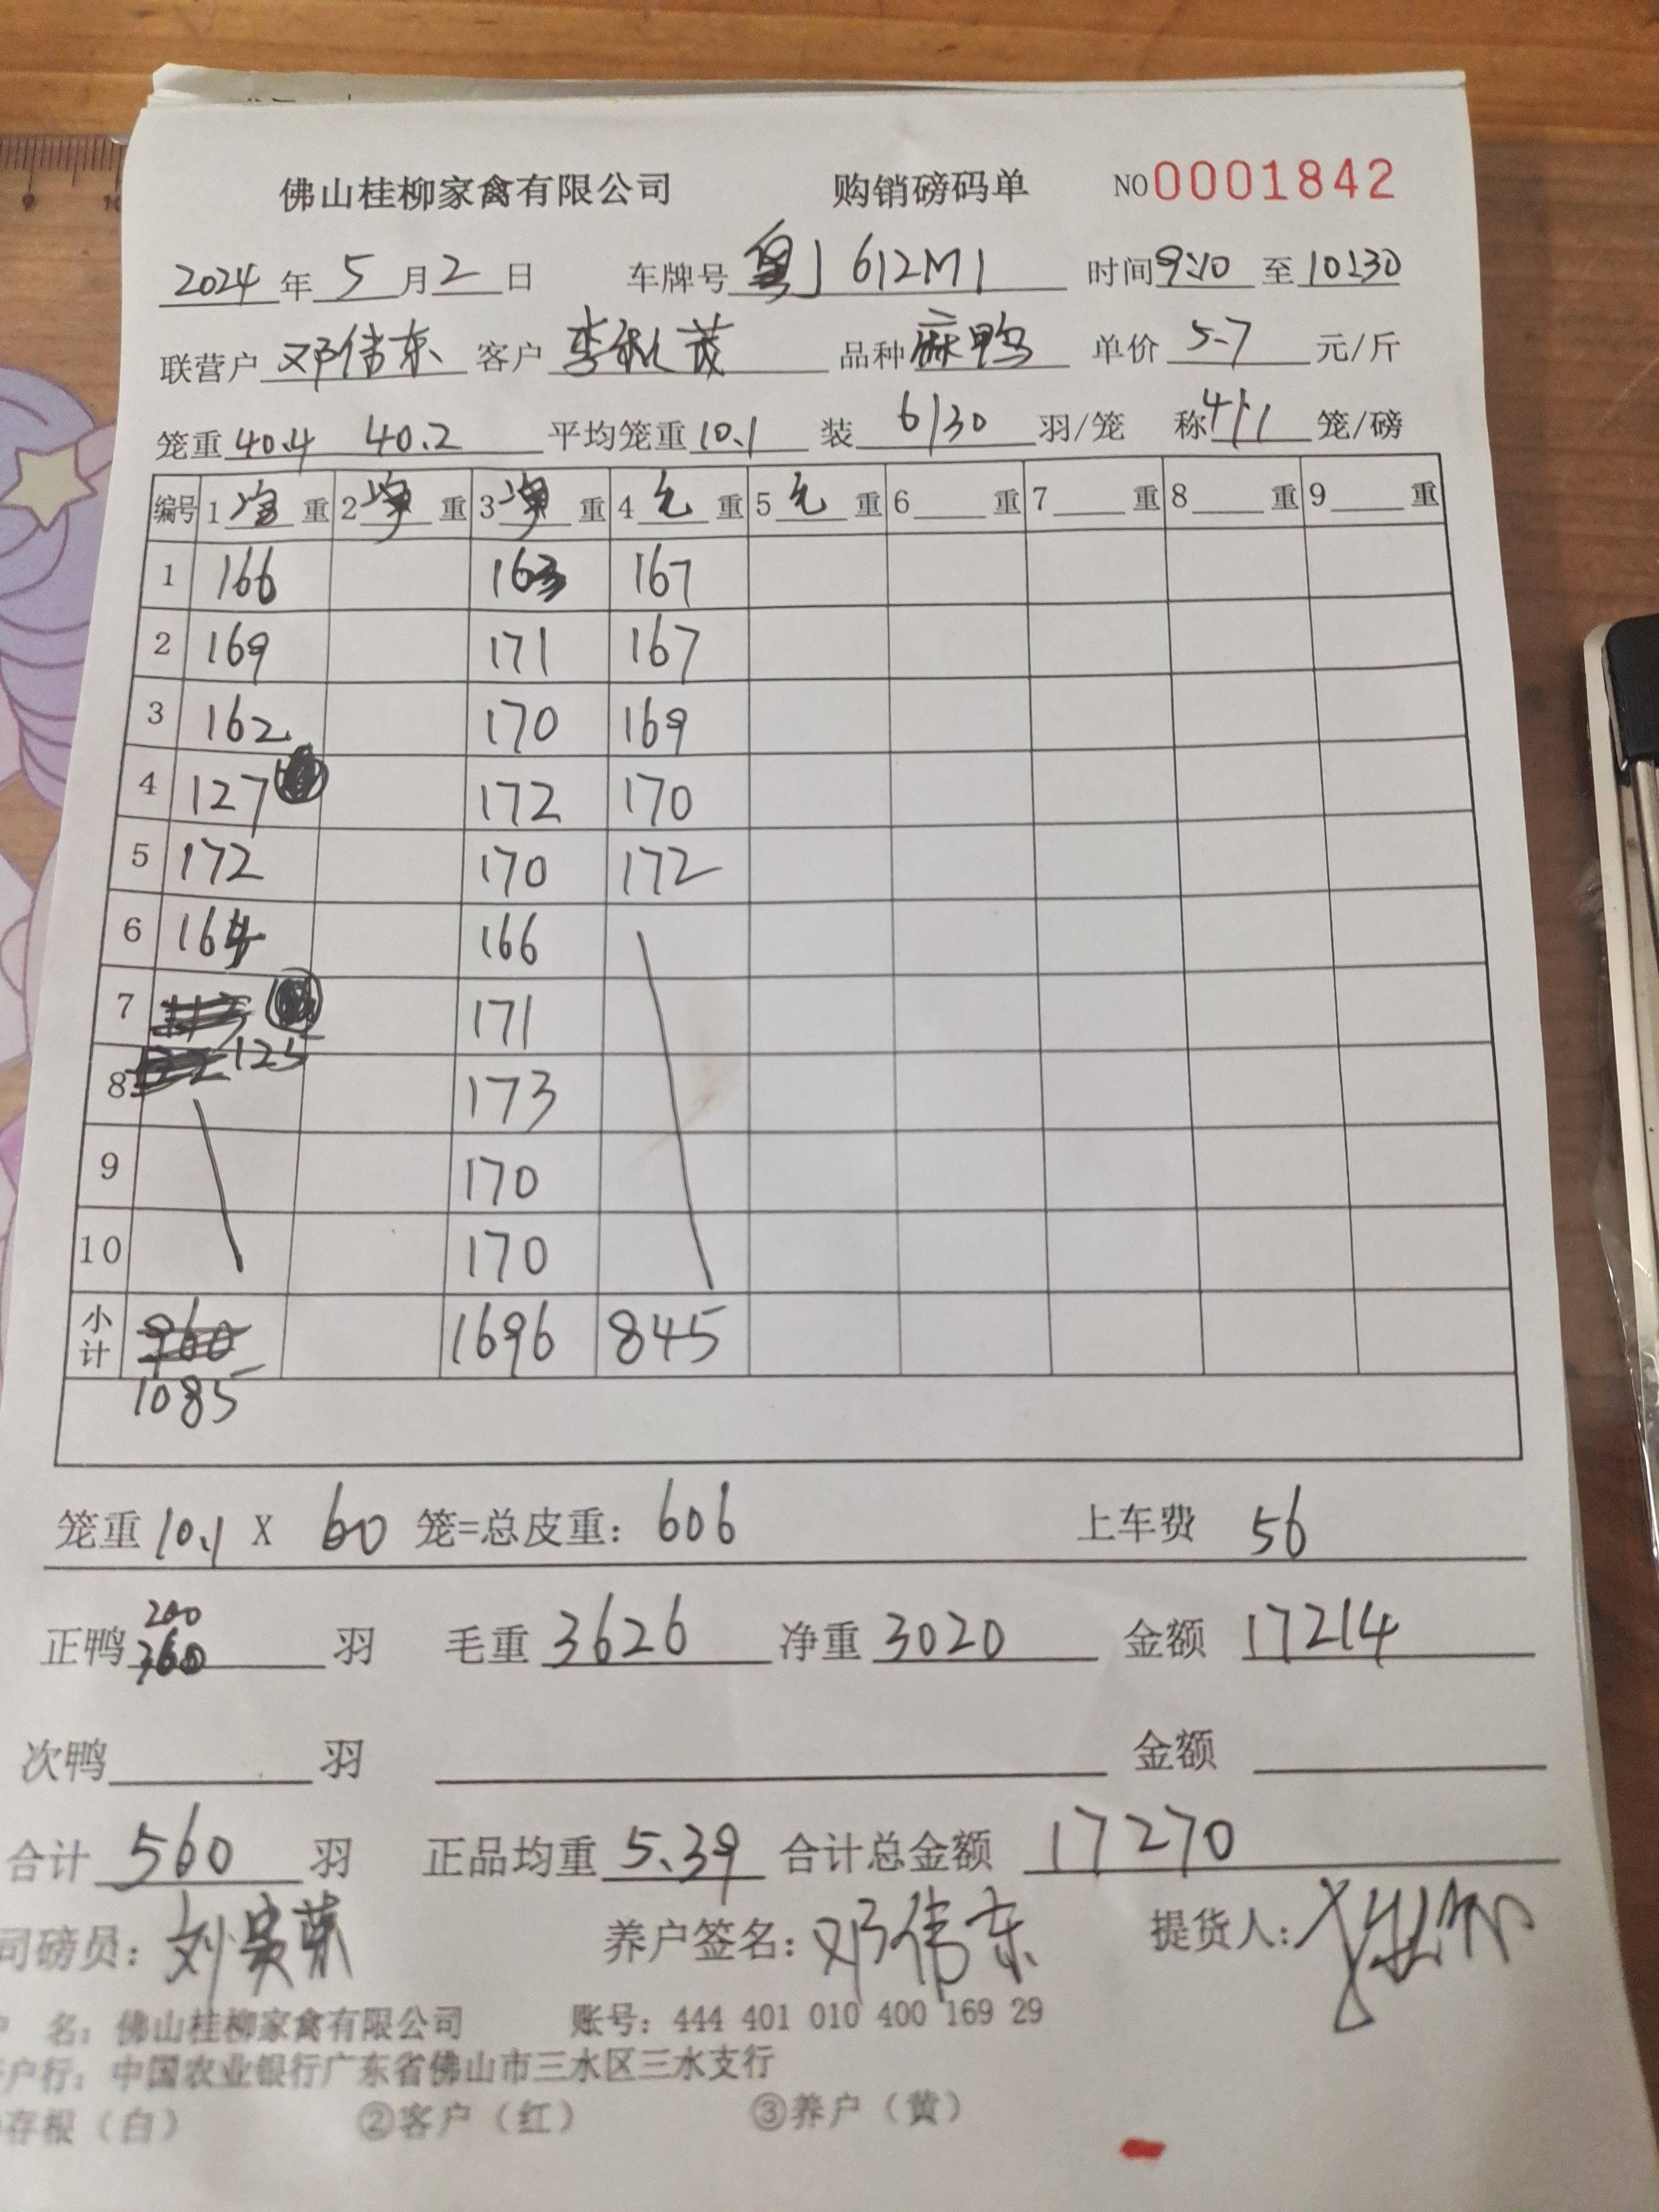 佛山桂柳家禽有限公司 购销磅码单 NO 0001842
2024年5月2日 车牌号粤J 612M1 时间9:10至10:30
联营户邓伟东 客户李 茂 品种麻鸭 单价5.7元/斤
笼重40.4 40.2 平均笼重10.1 装6/30羽/笼 称4/1笼/磅
编号 1 重 2 重 3 重 4 毛重 5 毛重 6 重 7 重 8 重 9 重
1 166 163 167
2 169 171 167
3 162 170 169
4 127 172 170
5 172 170 172
6 164 166
7 171
8 125 173
9 170
10 170
小计 960 1696 845
1085
笼重10.1 X 60 笼=总皮重：606 上车费 56
200
正鸭360羽 毛重3626 净重3020 金额17214
次鸭 羽 金额
合计560羽 正品均重5.39 合计总金额17270
司磅员：刘 荣 养户签名：邓伟东 提货人：
名：佛山桂柳家禽有限公司 账号：444 401 010 400 169 29
户行：中国农业银行广东省佛山市三水区三水支行
存根（白） ②客户（红） ③养户（黄）